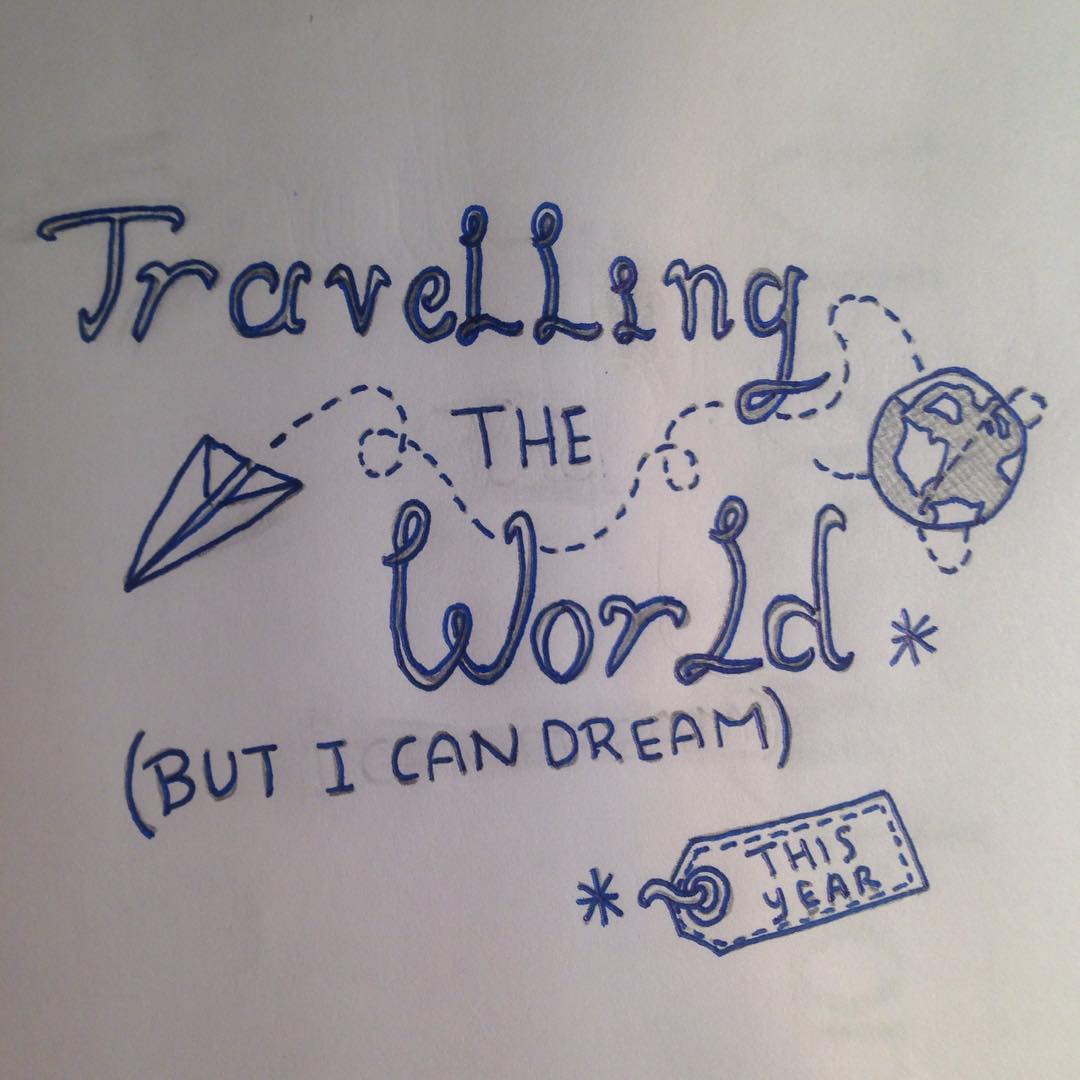 Travelling
THE
World *
(BUT I CAN DREAM)
* THIS
YEAR